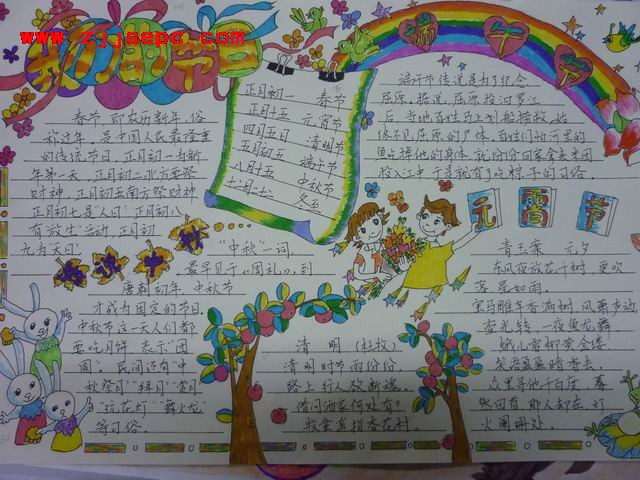 www.zjjsepc.com
我们的节日
春节,即农历新年,俗
称过年。是中国人民最隆重
的传统节日。正月初一为新
年第一天,正月初二北方要祭
财神,正月初五南方祭财神
正月初七是"人日",正月初八
有"放生"活动,正月初
九为天日。
正月初一 春节
正月十五 元宵节
四月五日 清明节
五月初五 端午节
八月十五 中秋节
冬至
端午节
端午节传说是为了纪念
屈原。据说,屈原投汨罗江
后,当地百姓马上划船捞救,始
终不见屈原的尸体。百姓们怕河里的
鱼吃掉他的身体,就纷纷回家拿来米团
投入江中,于是就有了吃粽子的习俗。
中秋
"中秋"一词,
最早见于《周礼》,到
唐朝初年,中秋节
才成为固定的节日
中秋节这一天人们都
要吃月饼,表示"团
圆"。民间还有"中
秋祭月""拜月""赏月"
舞火龙
等习俗。
清明(杜牧)
清明时节雨纷纷,
路上行人欲断魂。
借问酒家何处有?
牧童遥指杏花村。
元宵节
青玉案 元夕
东风夜放花千树,更吹
落,星如雨。
宝马雕车香满路,风箫声动,
壶光转,一夜鱼龙舞。
蛾儿雪柳黄金缕
笑语盈盈暗香去。
众里寻他千百度,蓦
然回首,那人却在,灯
火阑珊处。